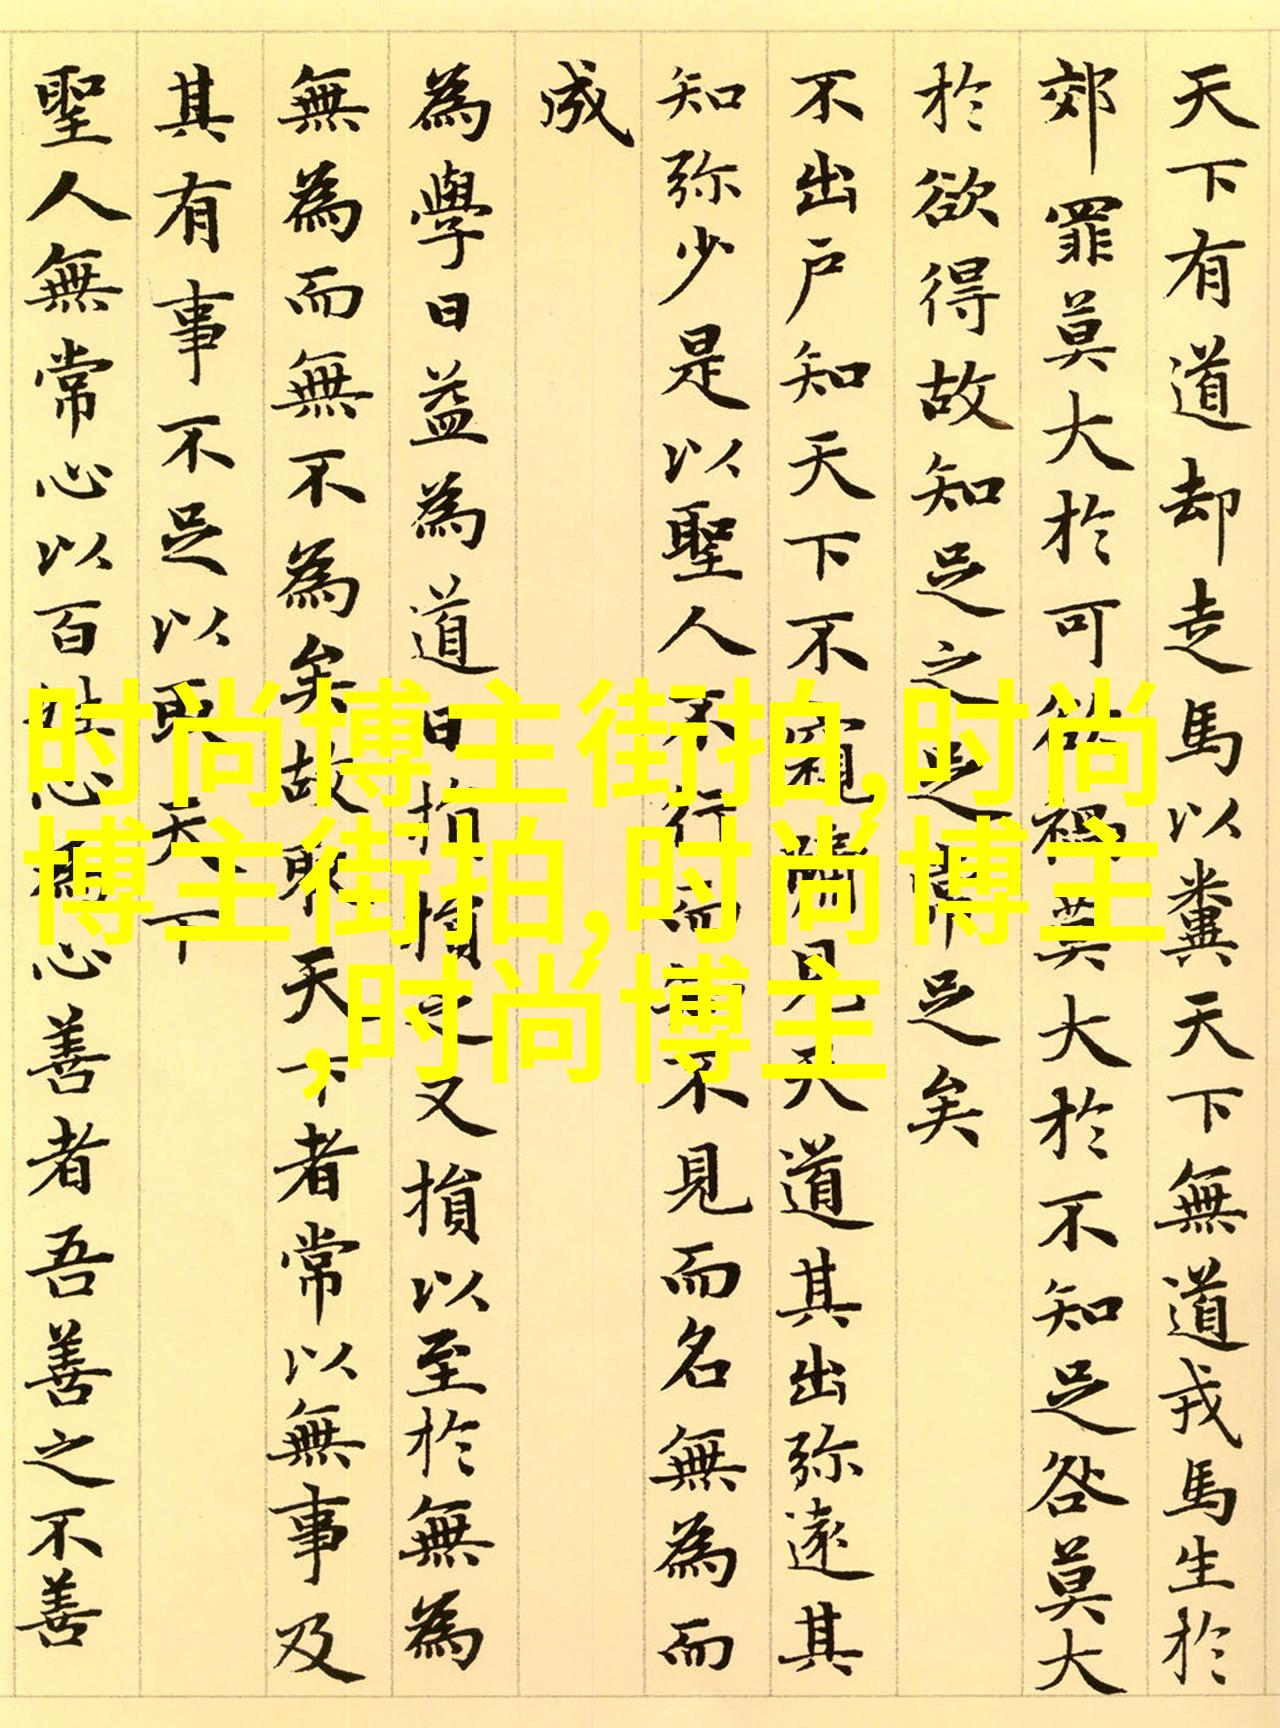 天下有道却走馬以糞天下無道戎馬生於
郊罪莫大於可欲禍莫大於不知足咎莫大
於欲得故知足之足常足矣
不出戶知天下不窺牖見天道其出弥遠其
知弥少是以聖人不行而知不見而名無為而
成
為學日益為道日損損之又損以至於無為
無為而無不為矣故取天下者常以無事及
其有事不足以取天下
聖人無常心以百姓心為心善者吾善之不善
时尚博主街拍,时尚
博主街拍,时尚博主
,时尚博主